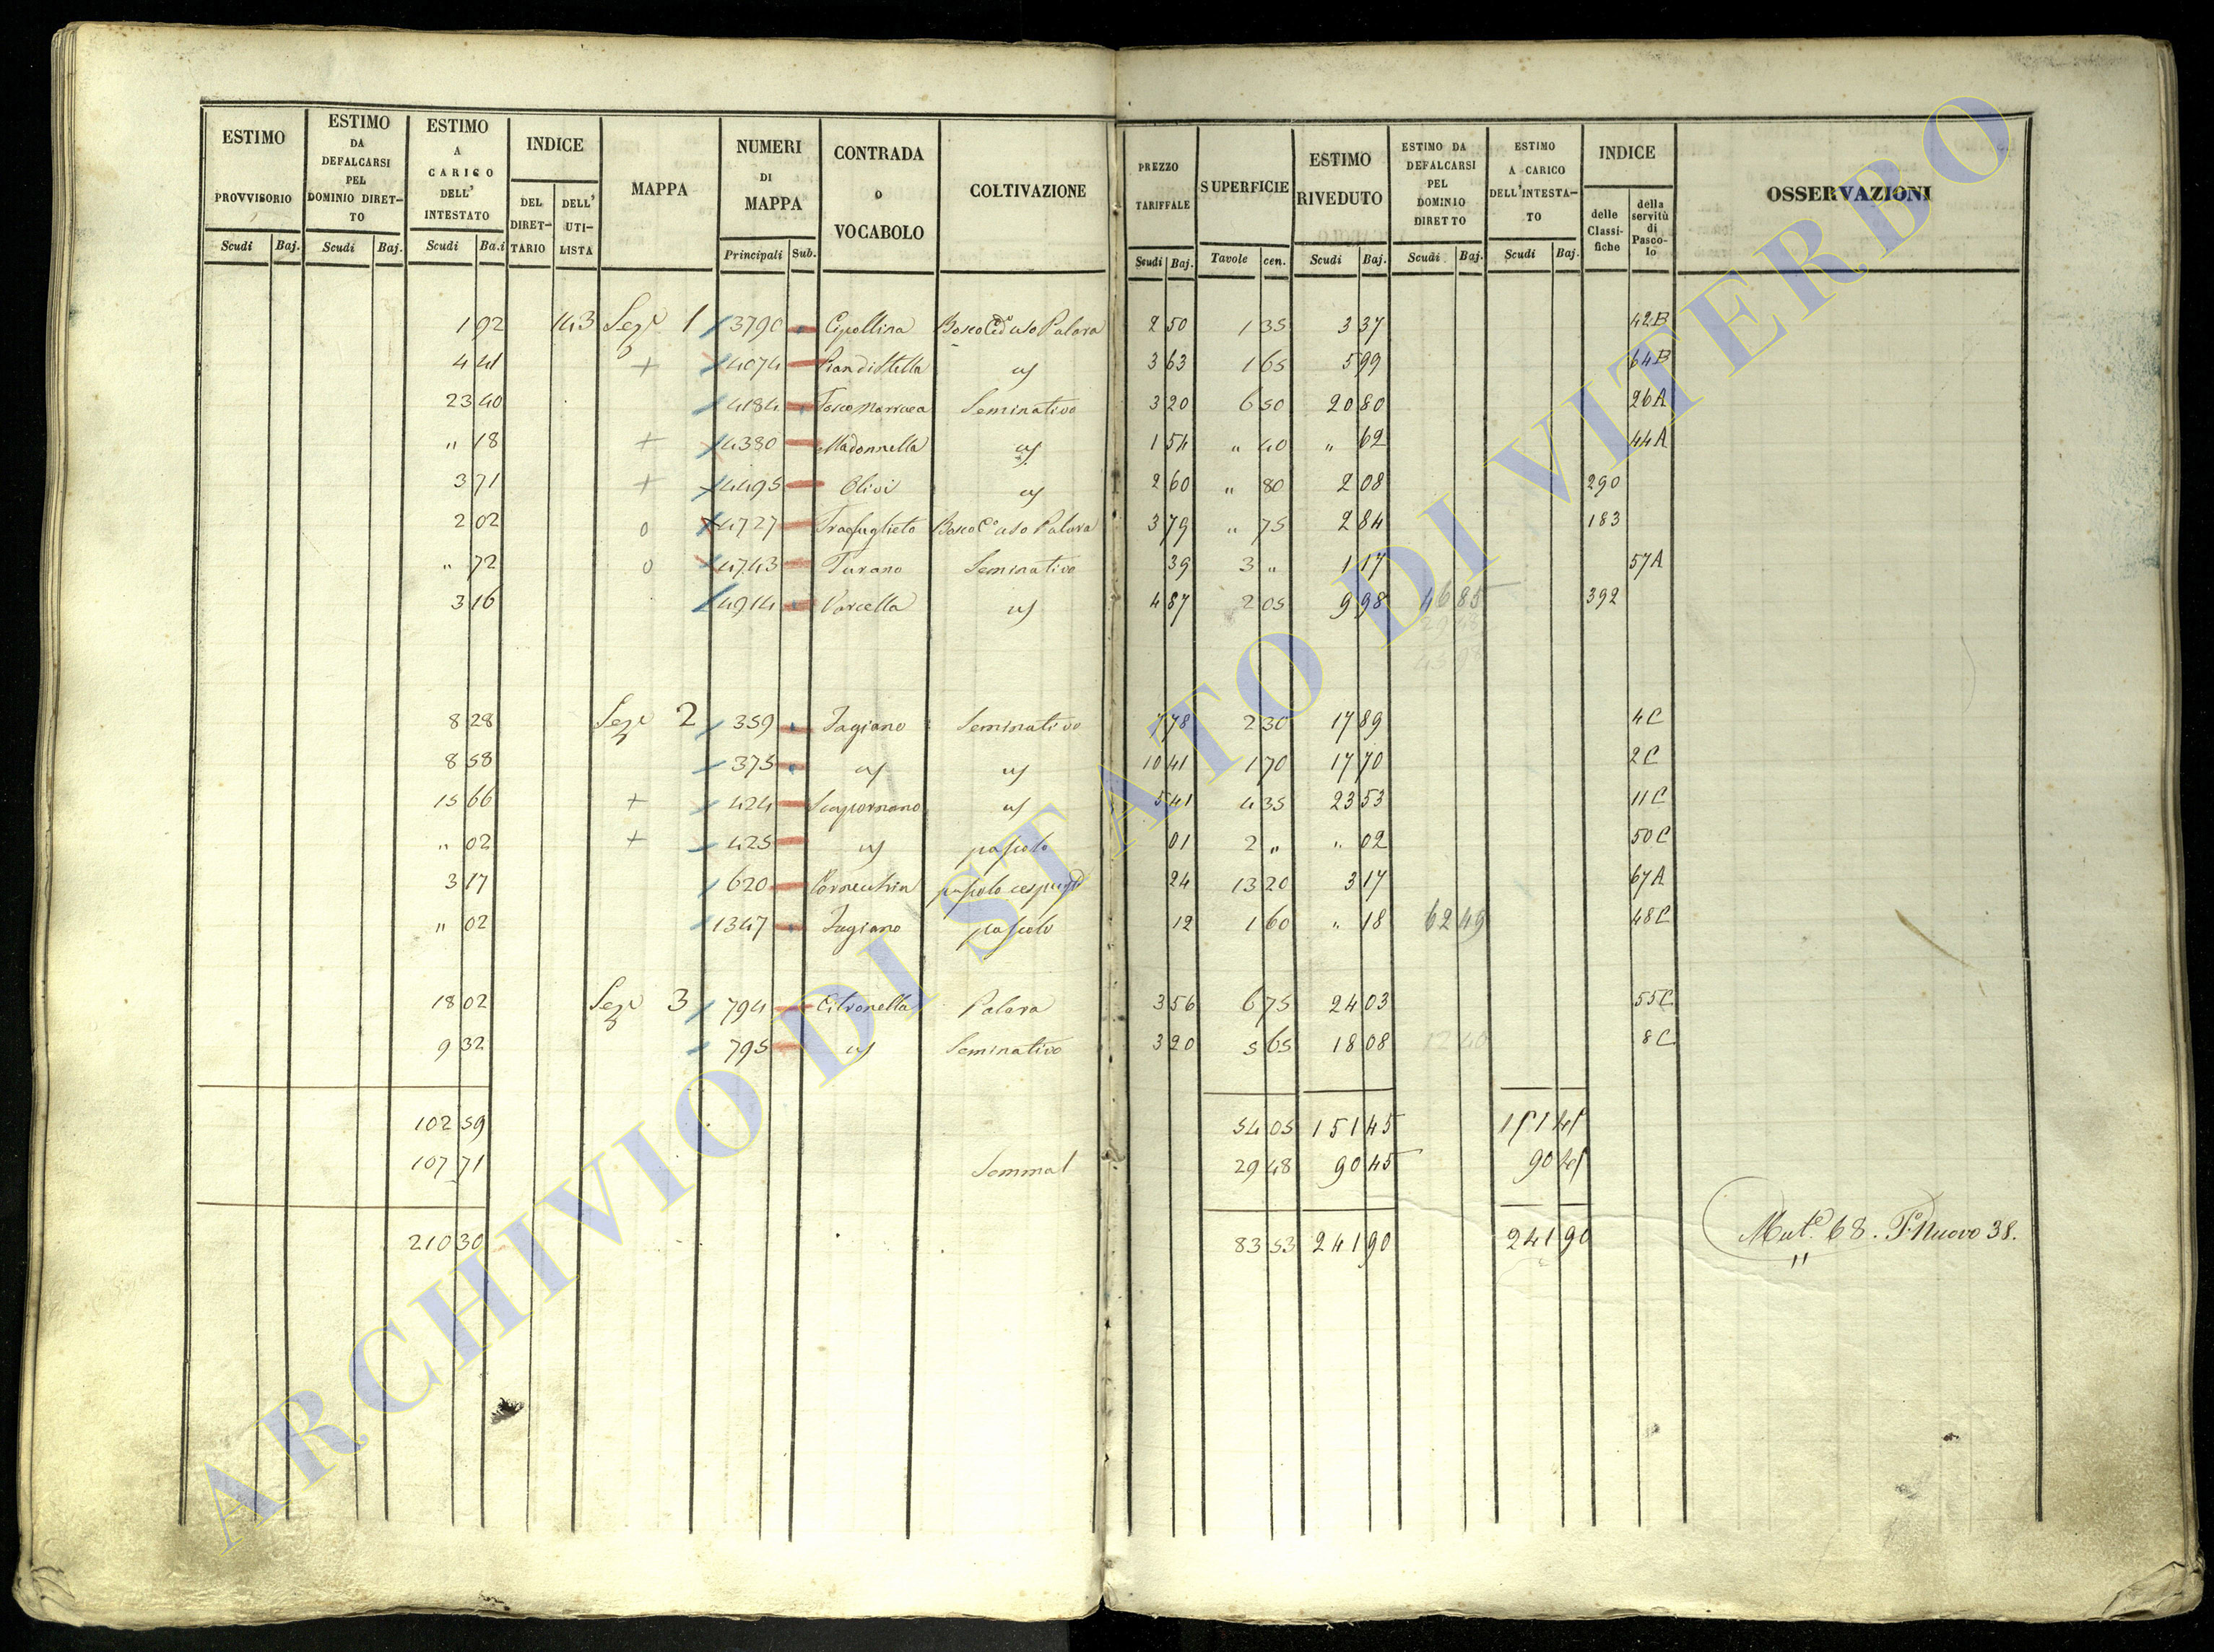 ESTIMO PROVVISORIO
Scudi Baj.
ESTIMO DA DEFALCARSI PEL DOMINIO DIRETTO
Scudi Baj.
ESTIMO A CARICO DELL' INTESTATO
Scudi Ba.i
INDICE
DEL DIRETTARIO
DELL' UTILISTA
MAPPA
NUMERI DI MAPPA
Principali Sub.
CONTRADA o VOCABOLO
COLTIVAZIONE
PREZZO TARIFFALE
Scudi Baj.
SUPERFICIE
Tavole cen.
ESTIMO RIVEDUTO
Scudi Baj.
ESTIMO DA DEFALCARSI PEL DOMINIO DIRETTO
Scudi Baj.
ESTIMO A CARICO DELL'INTESTATO
Scudi Baj.
INDICE
delle Classifiche
della servitù di Pascolo
OSSERVAZIONI
1 92 143 Sez.e 1 3790 Cipollina Bosco Ced.o uso Palara 2 50 1 35 3 37 42B
4 41 + 4074 Piandistella id 3 63 1 65 5 99 64B
23 40 4184 Seminativo 3 20 6 50 20 80 26A
" 18 + 4380 Madonnella id 1 54 " 40 " 62 44A
3 71 + 4495 Olivi id 2 60 " 80 2 08 290
2 02 o 4727 Bosco C.o uso Palara 3 79 " 75 2 84 183
" 72 o 4743 Turano Seminativo 39 3 " 1 17 57A
3 16 4914 Porcella id 4 87 2 05 9 98 46 85 392
8 28 Sez.e 2 359 Fagiano Seminativo 7 78 2 30 17 89 4C
8 58 375 id id 10 41 1 70 17 70 2C
15 66 + 424 id 5 41 4 35 23 53 11C
" 02 + 425 id pascolo 01 2 " " 02 50C
3 17 620 Cornecchia pascolo cespugl.o 24 13 20 3 17 67A
" 02 1347 Fagiano pascolo 12 1 60 " 18 62 49 48C
18 02 Sez.e 3 794 Citronella Palara 3 56 6 75 24 03 55C
9 32 795 id Seminativo 3 20 5 65 18 08 12 40 8C
102 59 54 05 151 45 151 45
107 71 Somma 29 48 90 45 90 45
210 30 83 53 241 90 241 90 Mut.e 68. P. Nuovo 38.
ARCHIVIO DI STATO DI VITERBO